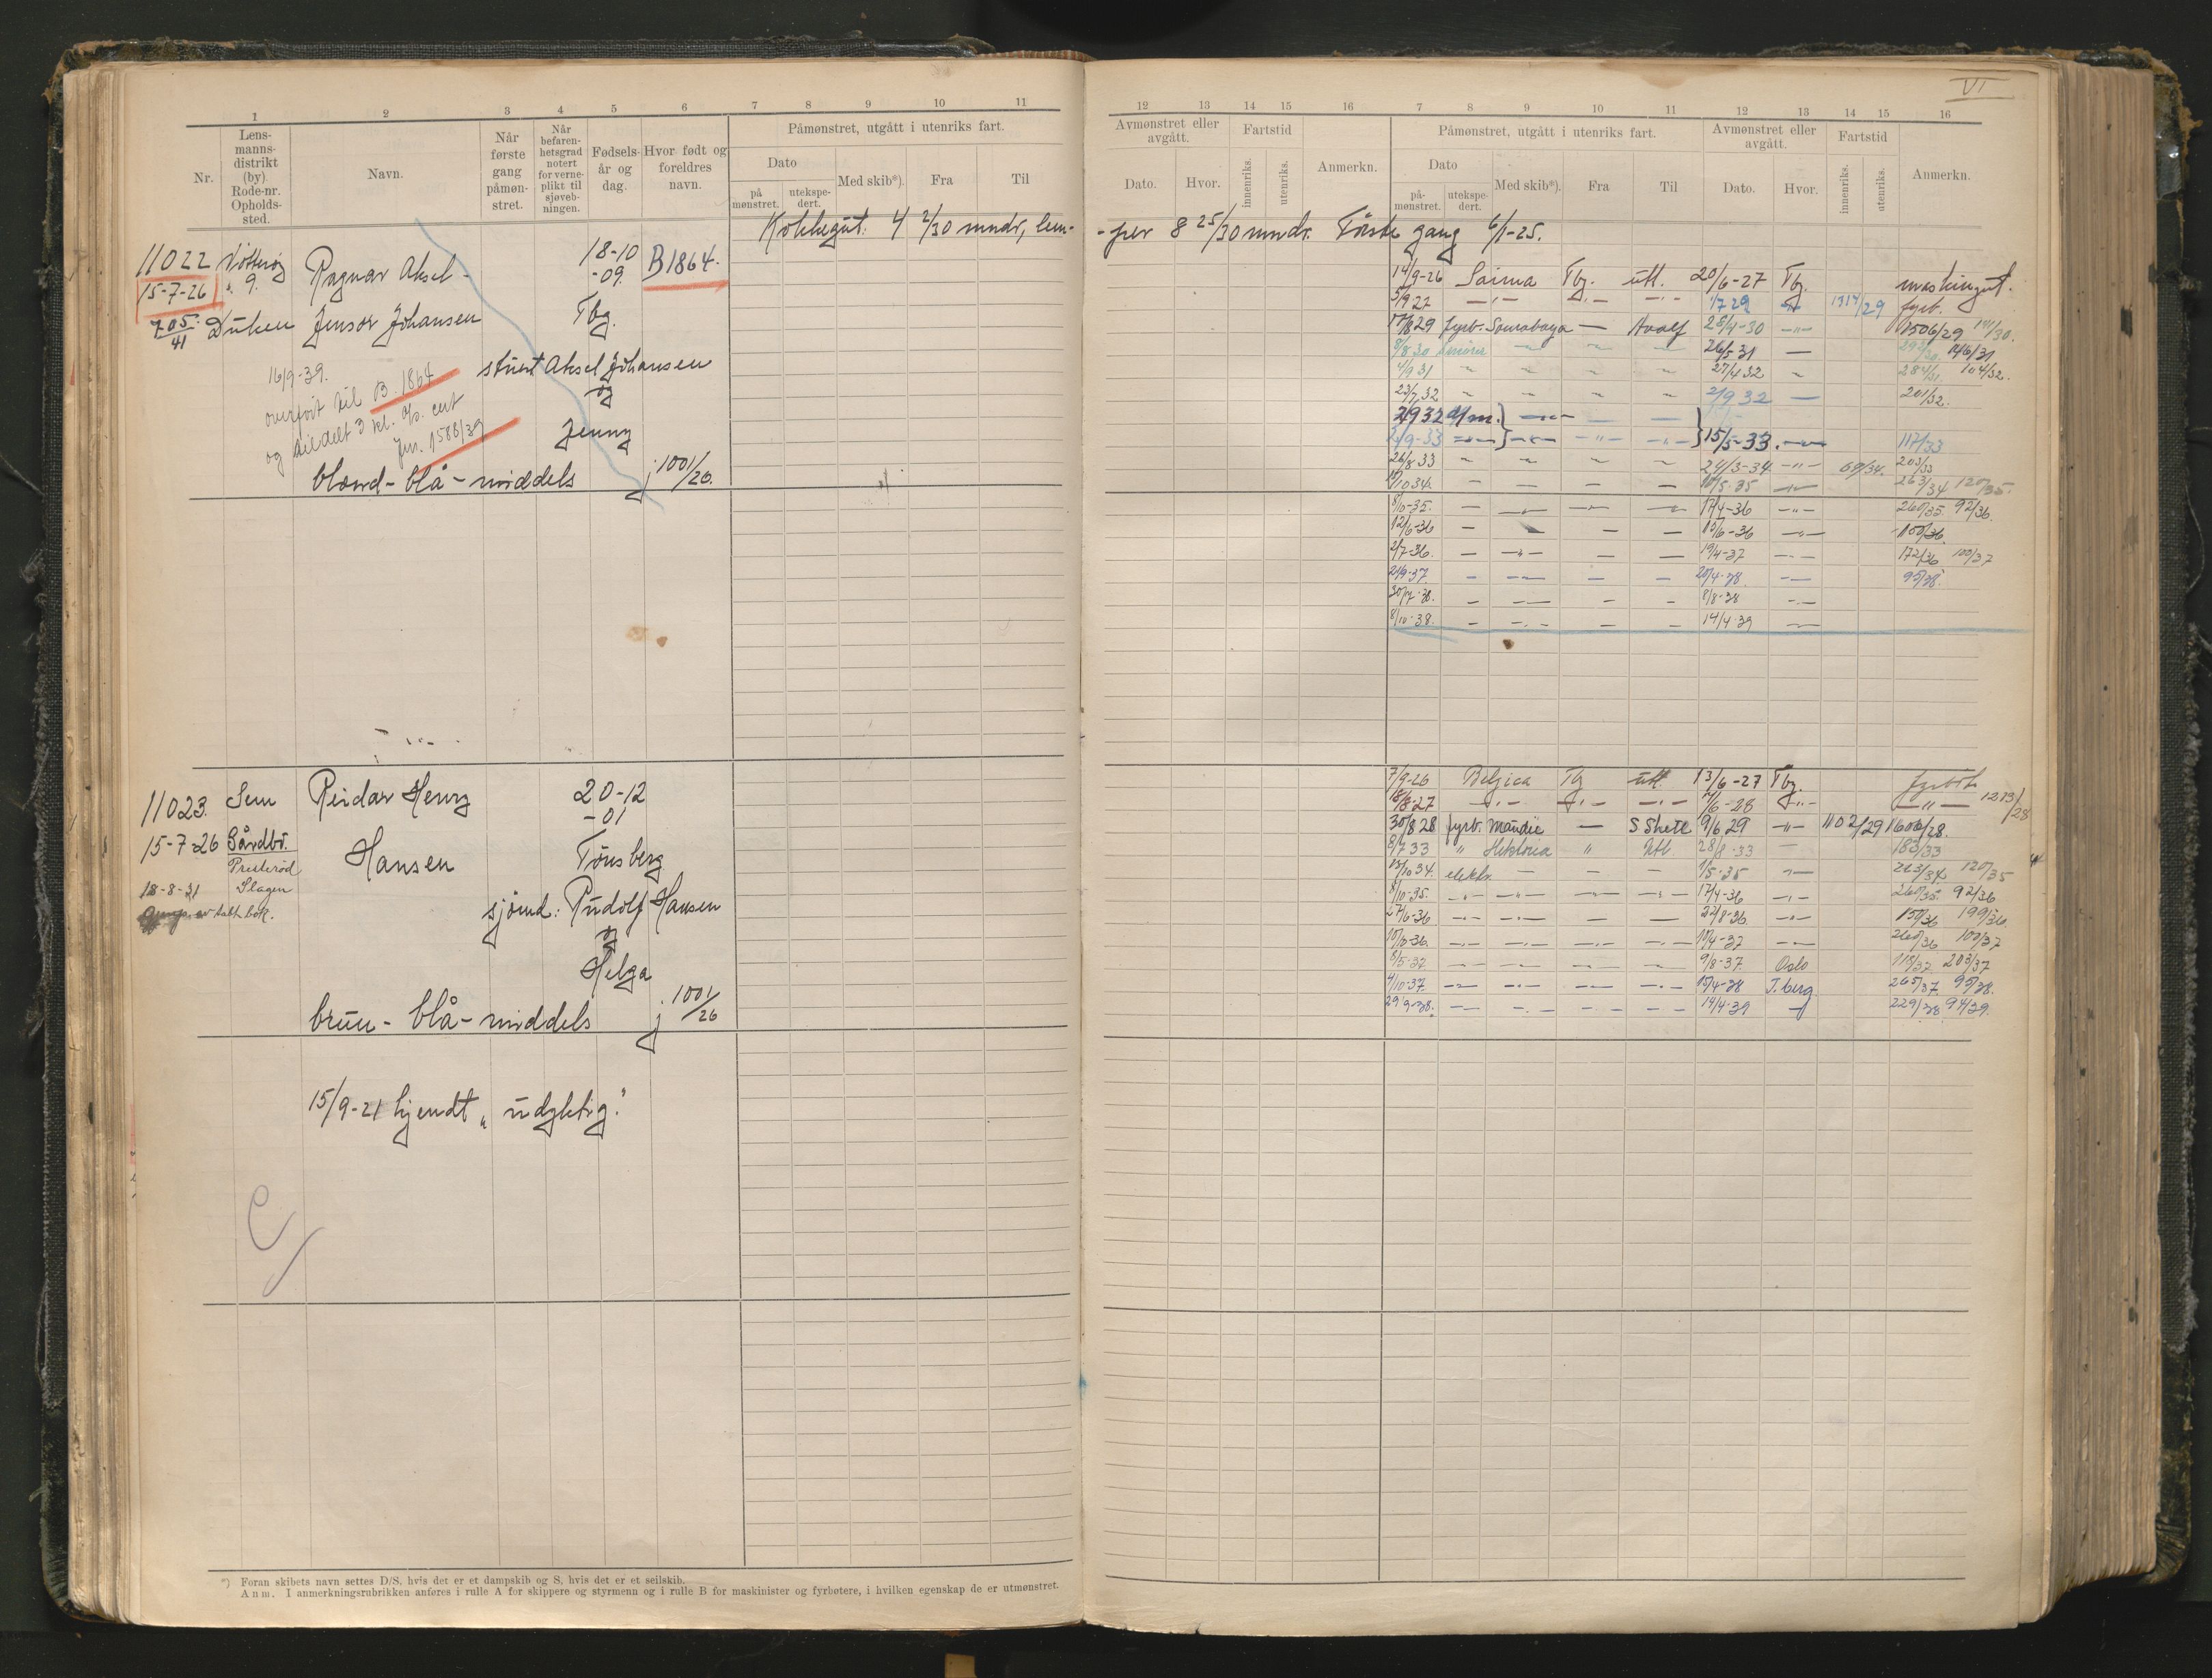 VI
1 2 3 4 5 6 7 8 9 10 11
Nr.
Lens-
manns-
distrikt
(by).
Rode-nr.
Opholds-
sted.
Navn.
Når
første
gang
påmøn-
stret.
Når
befaren-
hetsgrad
notert
for verne-
plikt til
sjøveb-
ningen.
Fødsels-
år og
dag.
Hvor født og
foreldres
navn.
Påmønstret, utgått i utenriks fart.
Dato
på
mønstret.
utekspe-
dert.
Med skib*).
Fra
Til
Kokkegut: 4 2/30 mndr, lem-
11022
15-7-26
705/41
9.
Duken
Ragnar Aksel -
Jensor Johansen
18-10
-09.
B1864.
Tbg.
stuert Aksel Johansen
og
Jenny
16/9-39.
overført til B. 1864
og tildelt 3 kl.
Jnr. 1588/39
blond - blå - middels
j 1001/26.
11023.
15-7-26
18-8-31
Sem
Presterød
Slagen
Reidar Henry
Hansen
20-12
-01
Tønsberg
sjømd: Rudolf Hansen
og
Helga
brun - blå - middels
j 1001/26
15/9-21 kjendt „udyktig."
*) Foran skibets navn settes D/S. hvis det er et dampskib og S. hvis det er et seilskib.
Anm. I anmerkningsrubrikken anføres i rulle A for skippere og styrmenn og i rulle B for maskinister og fyrbøtere, i hvilken egenskap de er utmønstret.
12 13 14 15 16 7 8 9 10 11 12 13 14 15 16
Avmønstret eller
avgått.
Dato.
Hvor.
Fartstid
innenriks.
utenriks.
Anmerkn.
Påmønstret, utgått i utenriks fart.
Dato
på-
mønstret.
utekspe-
dert.
Med skib*).
Fra
Til
Avmønstret eller
avgått.
Dato.
Hvor.
Fartstid
innenriks.
utenriks.
Anmerkn.
-per 8 25/30 mndr. Første gang 6/1-25.
14/9-26 Saima Tbg. utl. 20/6-27 Tbg. maskingut.
5/9 27 - " - - " - - " - fyrb.
17/8 29 fyrb. Sourabaya — 25/4-30 - " - 1506/29 141/30.
8/8 30 26/5 31 — 146/31
4/9 31 27/4 32 284/31 104/32.
23/7 32 2/9 32 — 201/32.
2/9 32
2/9-33 15/5-33. 117/33
26/8 33 24/3-34 - " - 69/34. 203/33
10/10 34. 10/5-35 263/34 120/35.
8/10-35. 17/4-36 - " - 260/35 92/36.
12/6-36 10/6-36 150/36.
2/7-36. 19/4-37 172/36 100/37
21/9-37. 20/4-38 95/38.
30/7-38. 8/8-38
8/10-38. 14/4-39
7/9-26 Belgica Tbg utl. 13/6-27 Tbg. fyrbøt
18/8-27 - " - - " - - " - 7/6-28 - " - - " - 1273/28
30/8 28 fyrb. Maudie — S Shetl 9/6 29 - " - 1102/29 1600/28.
8/7 33 " Hektoria " Utl 28/8-33 — 183/33
15/10 34. elektr. — — — 1/5-35 263/34 120/35
8/10-35. 17/4-36 260/35 92/36.
27/6-36 22/8-36 150/36 199/36.
10/10-36 10/4-37 260/36 100/37
8/5-37 9/8-37. Oslo 115/37 203/37
4/10-37. 15/4-38 T.berg 265/37. 95/38.
29/9-38. 14/4-39 229/38 94/39.